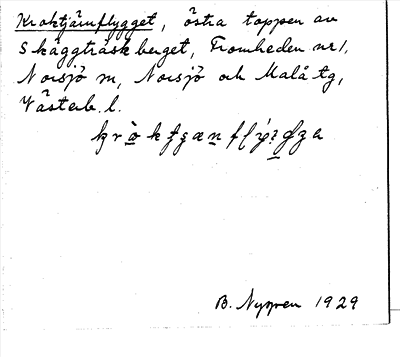 Kroktjärnflygget, östra toppen av
Skäggträskberget, Fromheden nr 1,
Norsjö sn, Norsjö och Malå tg,
Västerb. l.
B. Nyppen 1929